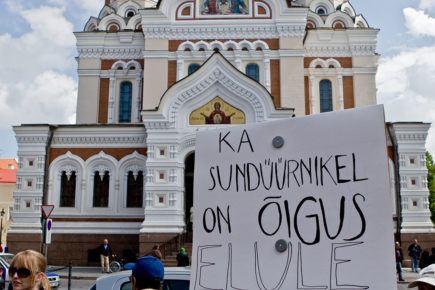 KA
SUNDÜÜRNIKEL
ON ÕIGUS
ELULE